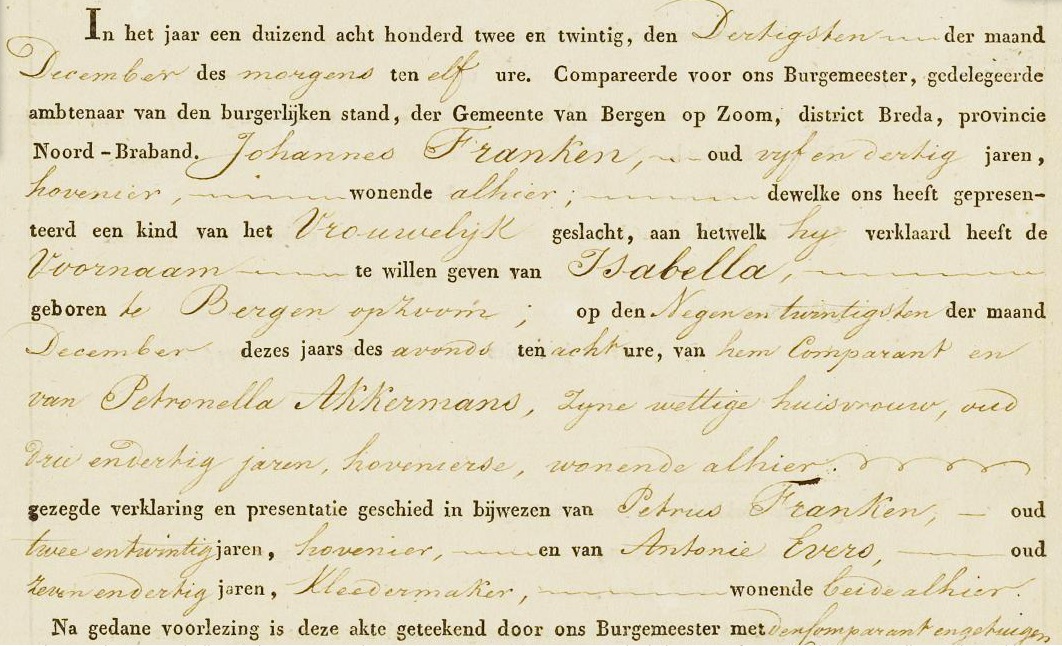 In het jaar een duizend acht honderd twee en twintig, den Dertigsten der maand
December des morgens ten elf ure. Compareerde voor ons Burgemeester, gedelegeerde
ambtenaar van den burgerlijken stand, der Gemeente van Bergen op Zoom, district Breda, provincie
Noord-Braband. Johannes Franken, oud vyf en dertig jaren,
hovenier, wonende alhier; dewelke ons heeft gepresen-
teerd een kind van het Vrouwelyk geslacht, aan hetwelk hy verklaard heeft de
Voornaam te willen geven van Isabella,
geboren te Bergen opzoom; op den Negen en twintigsten der maand
December dezes jaars des avonds ten acht ure, van hem Comparant en
van Petronella Akkermans, zyne wettige huisvrouw, oud
drie en dertig jaren, hovenierse, wonende alhier.
gezegde verklaring en presentatie geschied in bijwezen van Petrus Franken, oud
twee en twintig jaren, hovenier, en van Antonie Evers, oud
zeven en dertig jaren, Kleedermaker, wonende beide alhier.
Na gedane voorlezing is deze akte geteekend door ons Burgemeester met den Comparant en getuigen